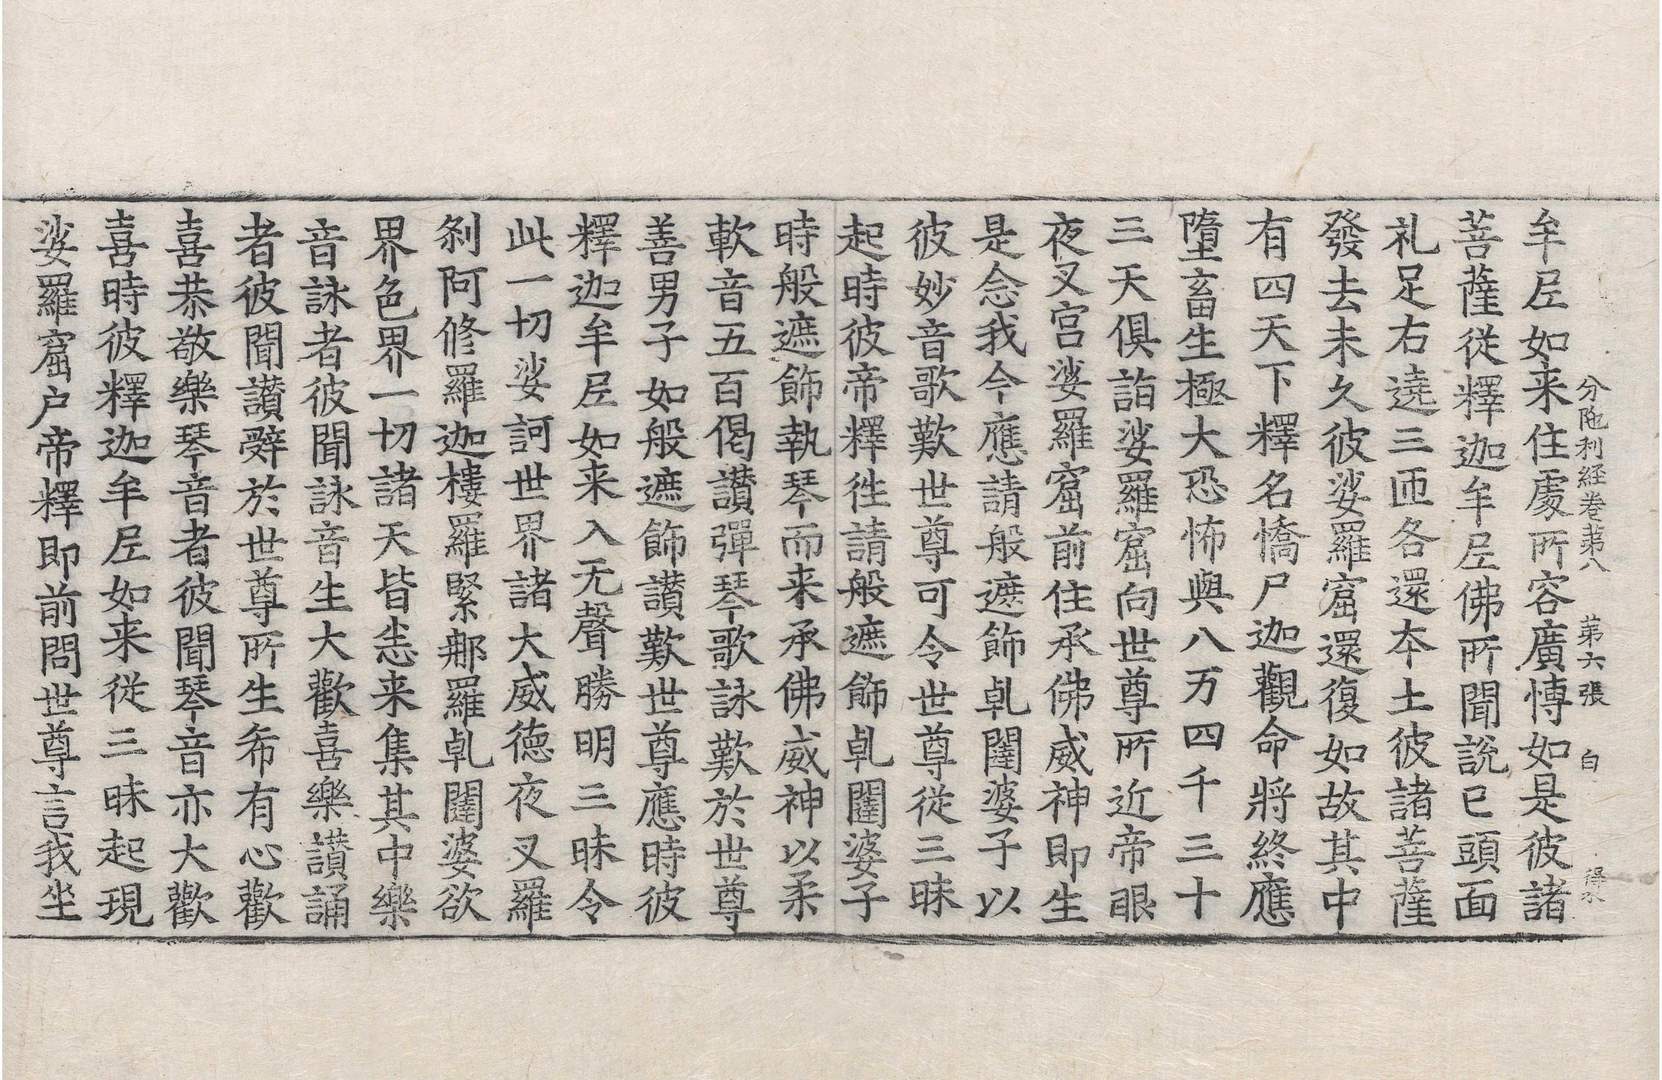 分陁利経卷苐八　苐六張　白　得來
牟𡰱如来住處所容廣愽如是彼諸
菩薩從釋迦牟𡰱佛所聞說已頭面
礼足右遶三匝各還本土彼諸菩薩
發去未久彼娑羅窟還復如故其中
有四天下釋名憍尸迦觀命將終應
墮畜生極大恐怖與八万四千三十
三天俱詣娑羅窟向世尊所近帝眼
夜叉宫娑羅窟前住承佛威神即生
是念我今應請般遮飾乹闥婆子以
彼妙音歌歎世尊可令世尊從三昧
起時彼帝釋徃請般遮飾乹闥婆子
時般遮飾執琴而来承佛威神以柔
軟音五百偈讃彈琴歌詠歎於世尊
善男子如般遮飾讃歎世尊應時彼
釋迦牟𡰱如来入无聲勝明三昧令
此一切娑訶世界諸大威德夜叉羅
刹阿修羅迦樓羅緊那羅乹闥婆欲
界色界一切諸天皆悉来集其中樂
音詠者彼聞詠音生大歡喜樂讃誦
者彼聞讃辤於世尊所生希有心歡
喜恭敬樂琴音者彼聞琴音亦大歡
喜時彼釋迦牟𡰱如来從三昧起現
娑羅窟户帝釋即前問世尊言我坐